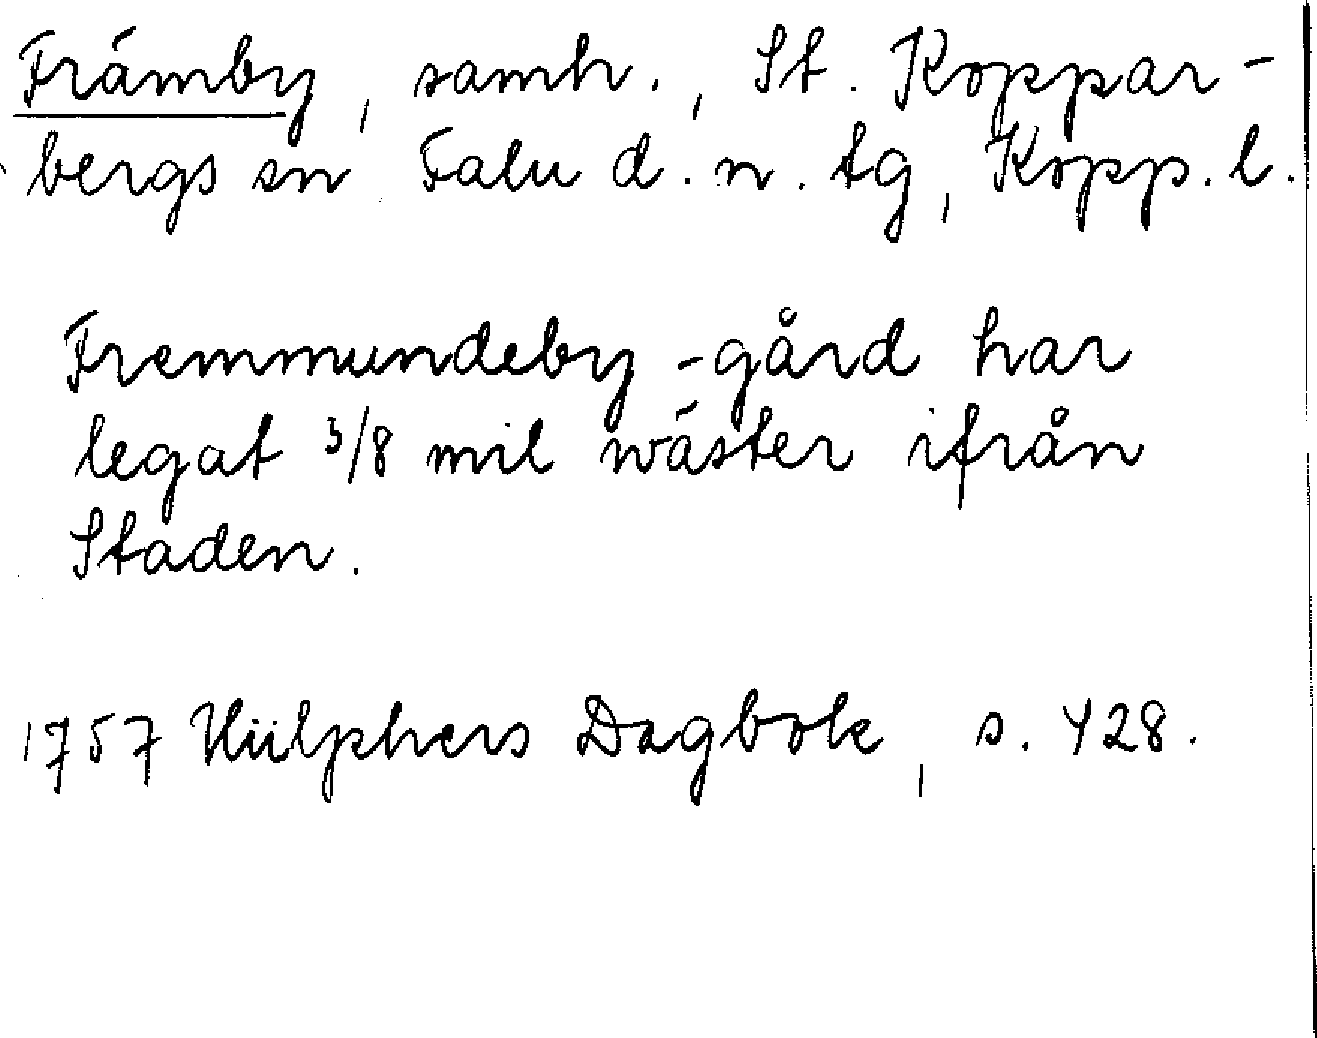 Främby, samh., St. Koppar-
bergs sn Falu d. n. tg, Kopp. l.
Fremmundeby-gård har
legat 3/8 mil wäster ifrån
Staden.
1757 Hülphers Dagbok, s. 428.